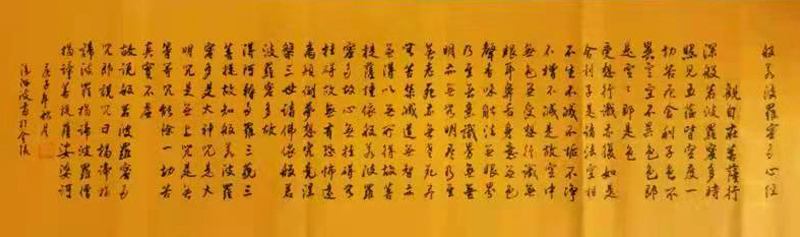 般若波羅蜜多心經
觀自在菩薩行
深般若波羅蜜多時
照見五蘊皆空度一
切苦厄舍利子色不
異空空不異色色即
是空空即是色
受想行識亦復如是
舍利子是諸法空相
不生不滅不垢不淨
不增不減是故空中
無色無受想行識無
眼耳鼻舌身意無色
聲香味觸法無眼界
乃至無意識界無無
明亦無無明盡乃至
無老死亦無老死盡
無苦集滅道無智亦
無得以無所得故菩
提薩埵依般若波羅
蜜多故心無挂碍無
挂碍故無有恐怖遠
離顛倒夢想究竟涅
槃三世諸佛依般若
波羅蜜多故
得阿耨多羅三藐三
菩提故知般若波羅
蜜多是大神咒是大
明咒是無上咒是無
等等咒能除一切苦
真實不虛
故說般若波羅蜜多
咒即說咒曰揭諦揭
諦波羅揭諦波羅僧
揭諦菩提薩婆訶
庚子年秋月
書於金陵